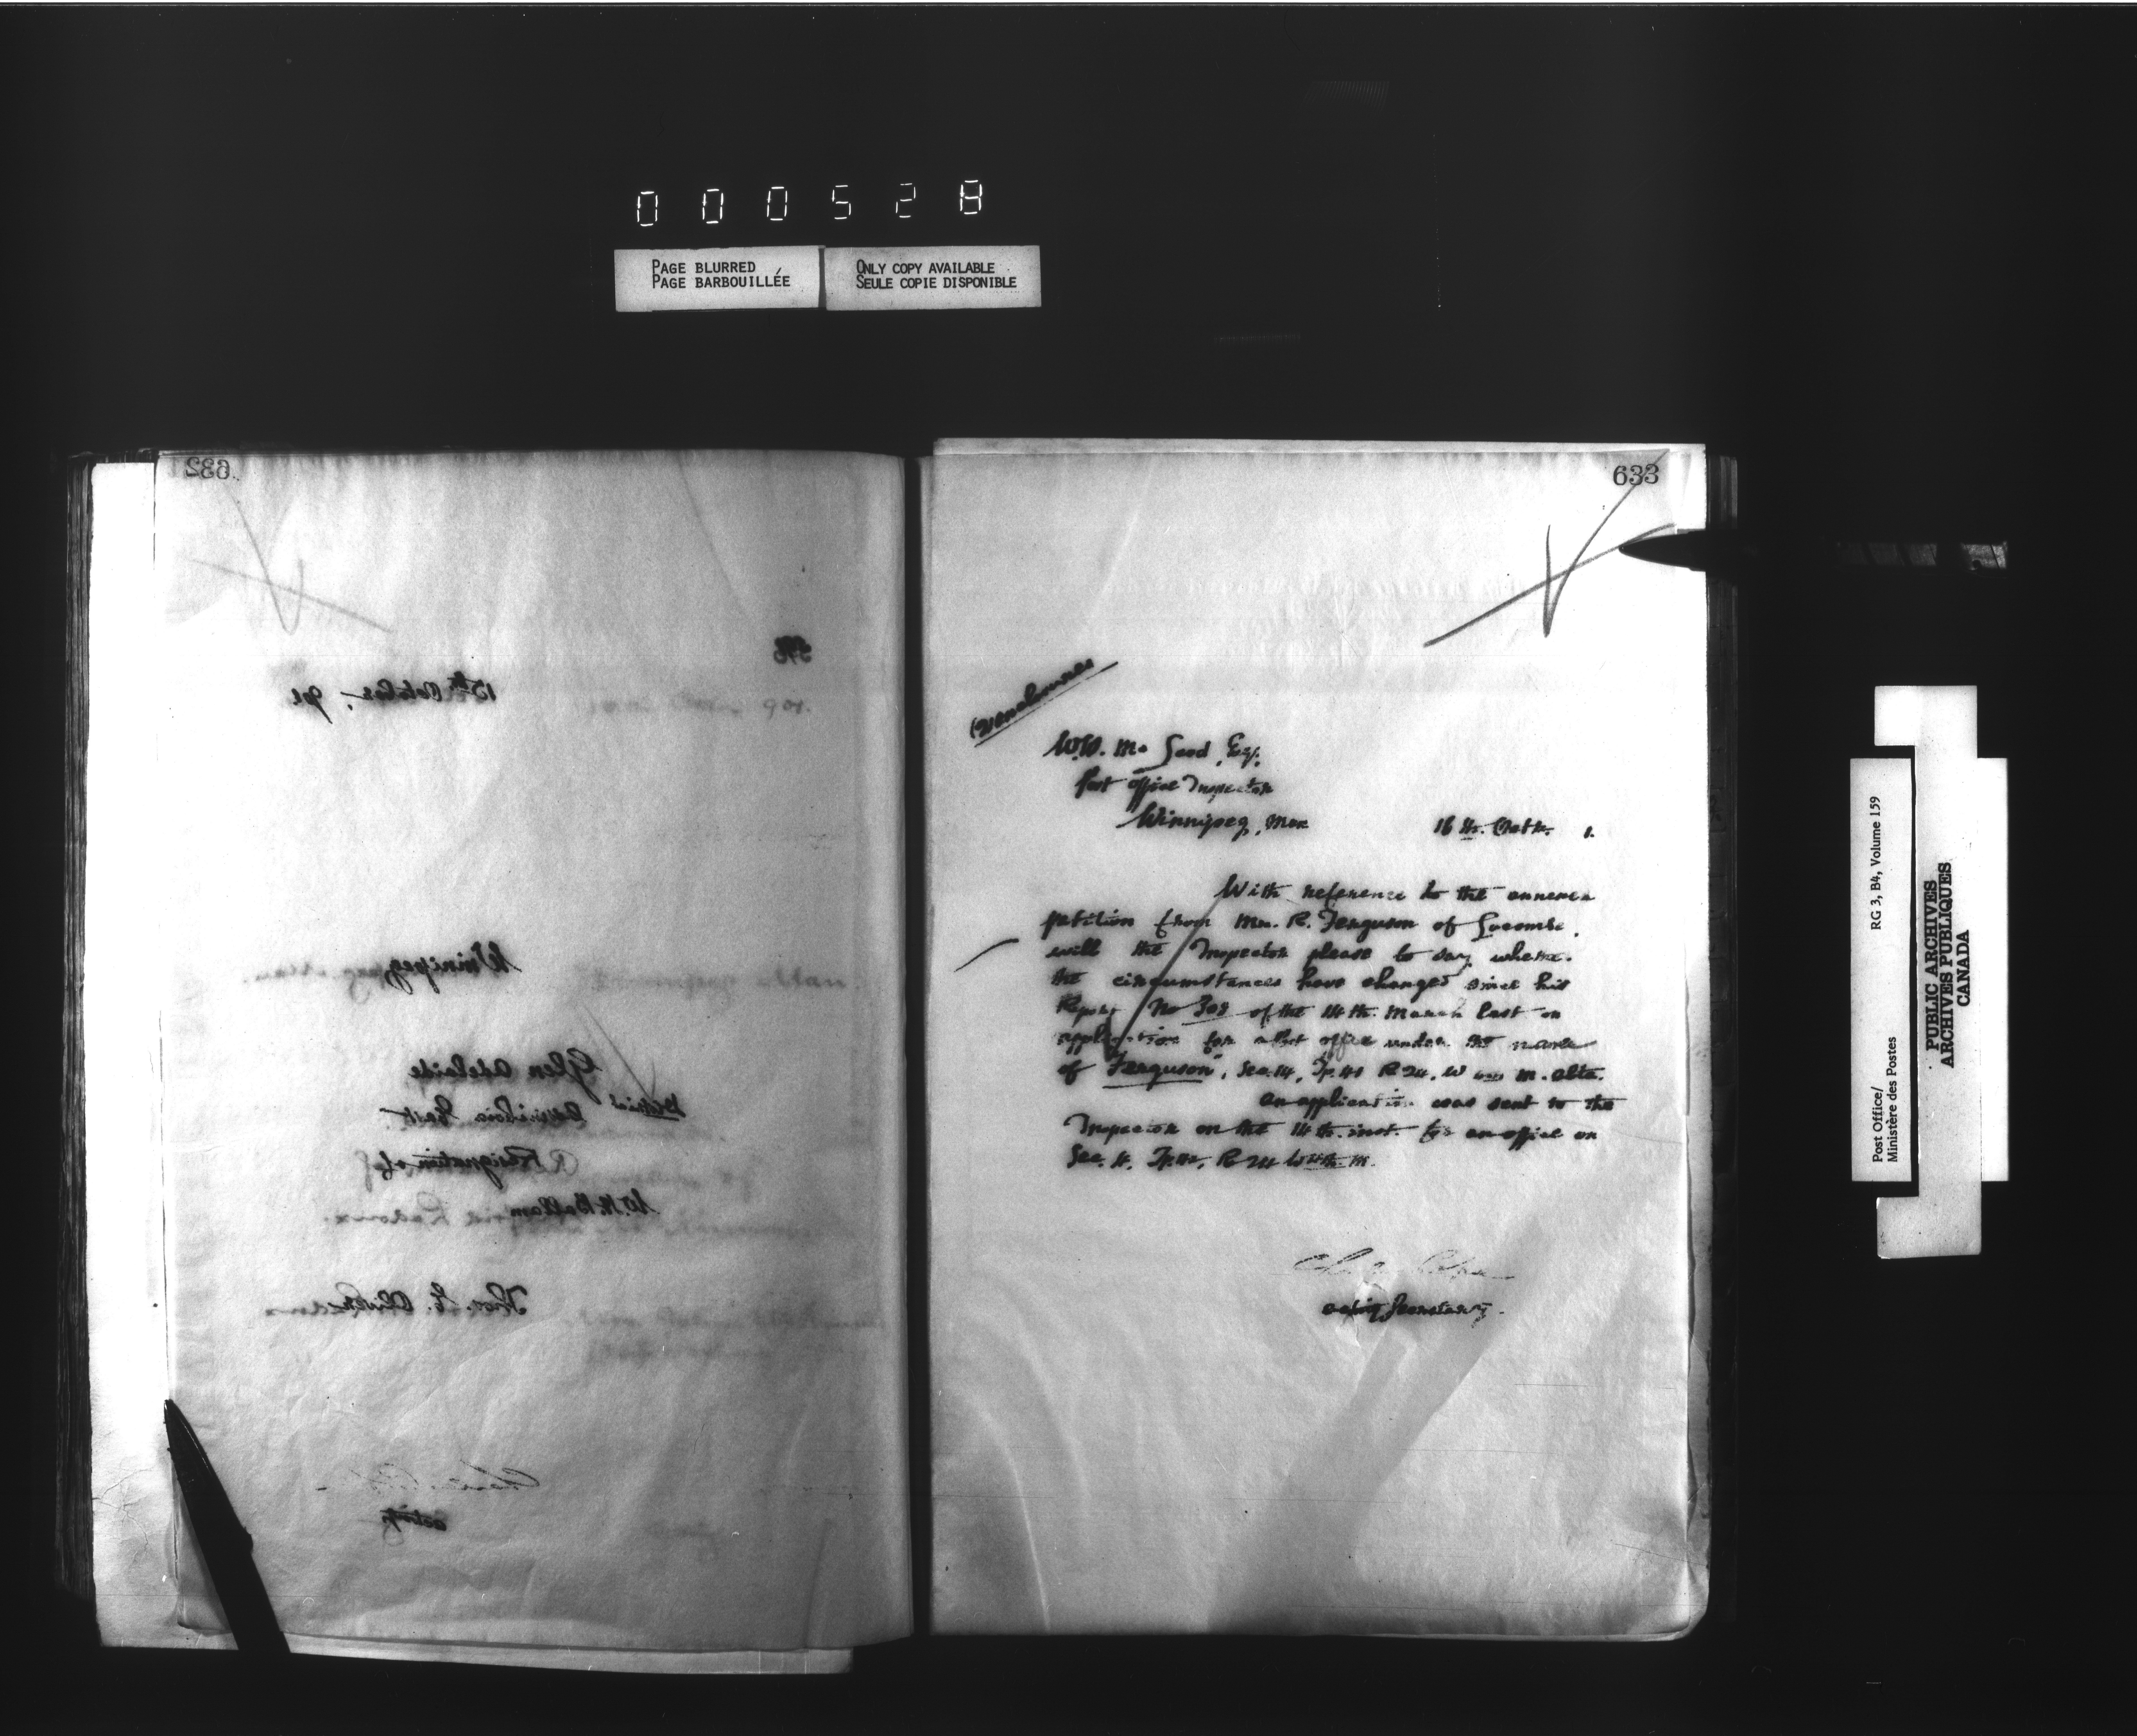 000528
PAGE BLURRED
PAGE BARBOUILLÉE
ONLY COPY AVAILABLE
SEULE COPIE DISPONIBLE
632
15th October, 901
Winnipeg
Glen Adelaide
District
Assiniboia East
Resignation of
W. H. Hallam
acting
633
W.W. McLeod, Esq.
Post Office Inspector
Winnipeg, Man
16th. Octbr. 1.
With reference to the annexed
petition from Mr. R. Ferguson of Lacombe,
will the Inspector please to say whether
the circumstances have changed since his
Report No 308 of the 14th. March last on
application for a Post office under the name
of Ferguson, Sec. 14, Tp. 40 R 24, W 4th M. Alta.
An application was sent to the
Inspector on the 14th. inst. for an office on
Sec. Tp. R 24 W 4th. M.
acting Secretary.
Post Office/
Ministère des Postes
RG 3, B4, Volume 159
PUBLIC ARCHIVES
ARCHIVES PUBLIQUES
CANADA